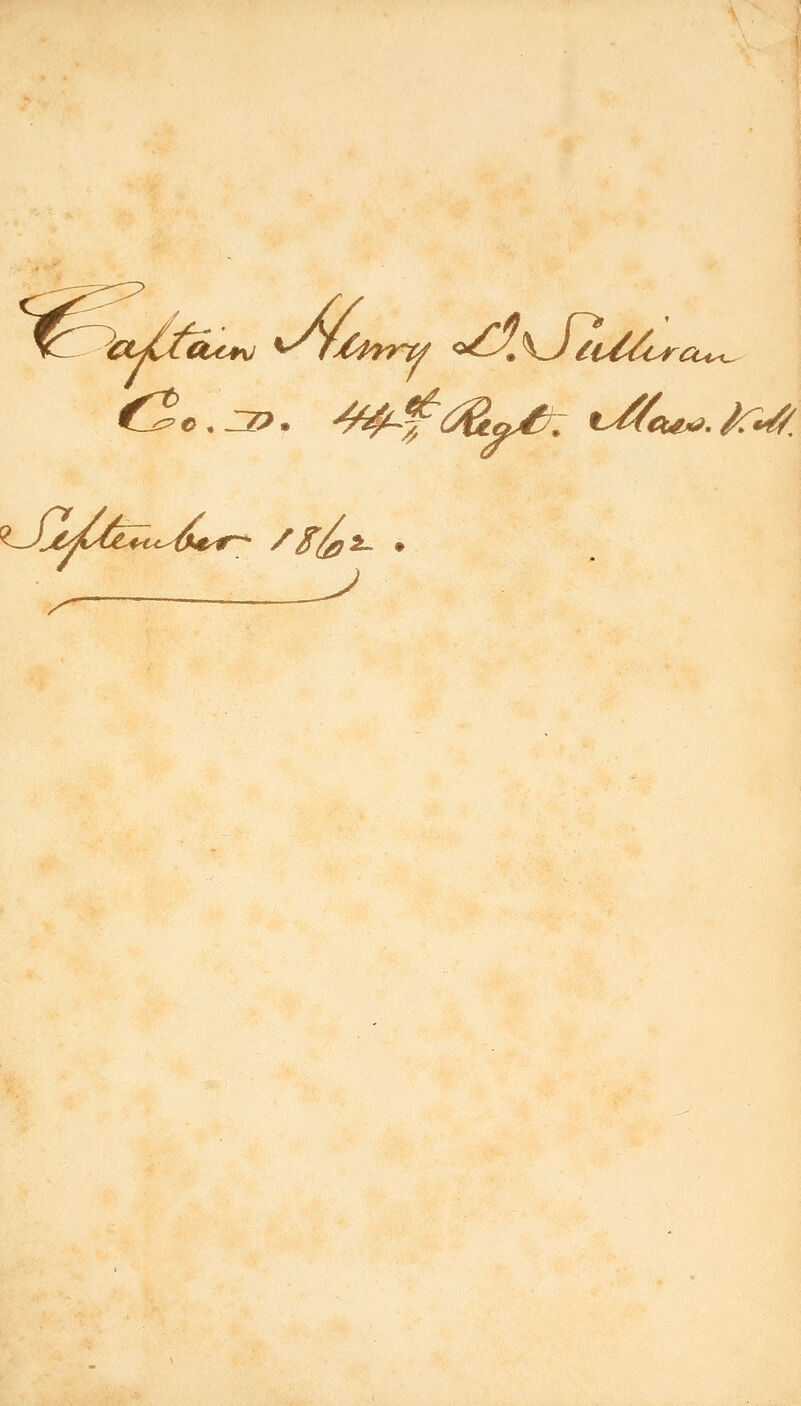 Captain Henry D. Sullivan
Co. D. 44th Regt. Mass. V. M.
September 1862.